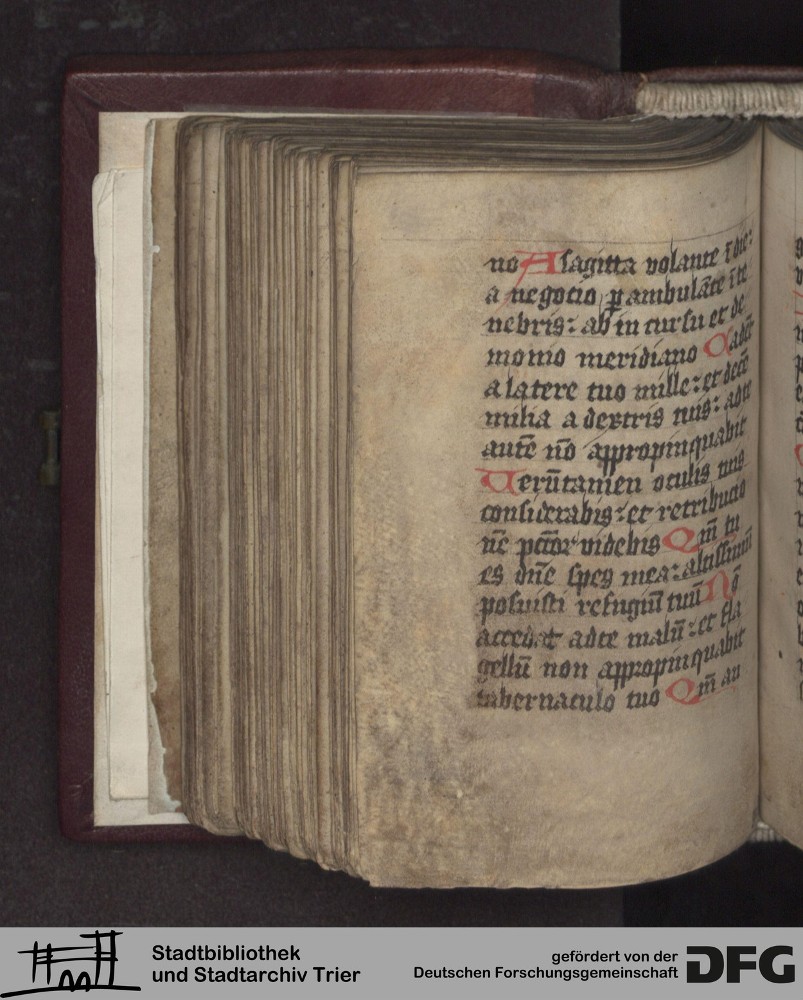 no A sagitta volante ī die:
a negocio ꝑambulāte ī te
nebris: ab incursu et de
monio meridiano Cadēt
a latere tuo mille: et decē
milia a dextris tuis: ad te
autē nō appropinquabit
Uerūtamen oculis tuis
considerabis: et retribucio
nē pctōꝝ videbis Qm̄ tu
es dn̄e spes mea: altissimū
posuisti refugiū tuū Nō
accedat ad te malū: et fla
gellū non appropinquabit
tabernaculo tuo Qm̄ an
Stadtbibliothek
und Stadtarchiv Trier
gefördert von der
Deutschen Forschungsgemeinschaft
DFG